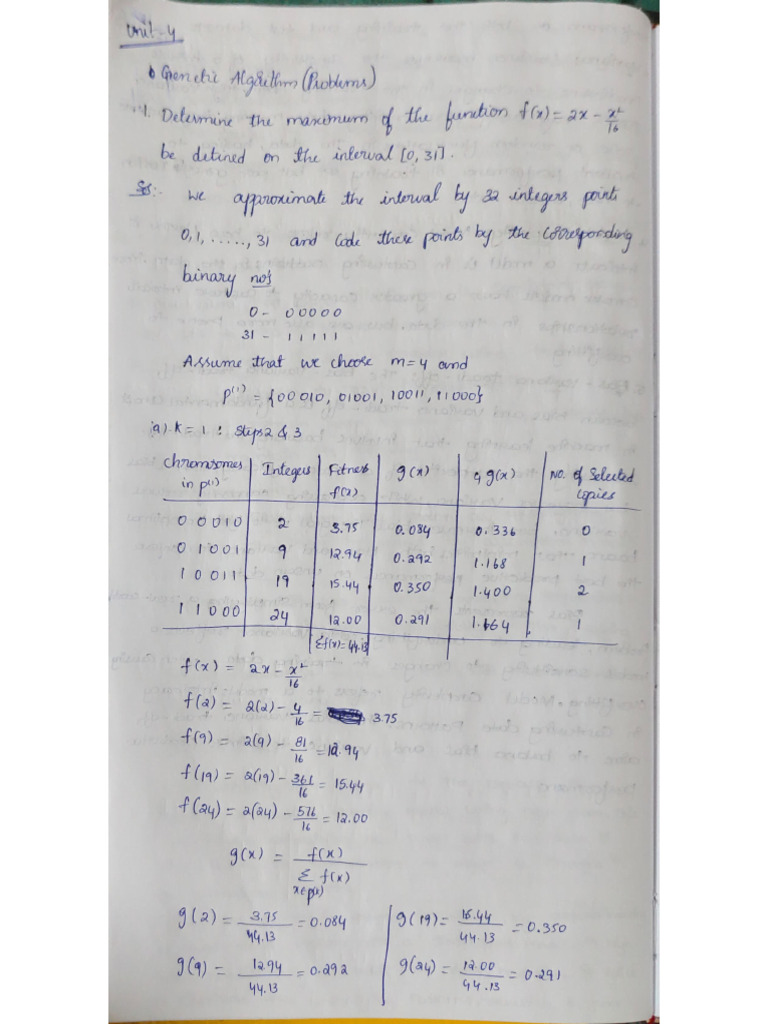 Unit-4
Genetic Algorithm (Problems)
1. Determine the maximum of the function f(x) = 2x - x²/16
be defined on the interval [0, 31].
Sol:- We approximate the interval by 32 integers points
0,1, ....., 31 and code these points by the corresponding
binary no's
0 - 00000
31 - 11111
Assume that we choose m=4 and
p⁽¹⁾ = {00010, 01001, 10011, 11000}
(a) k = 1 : Steps 2 & 3
Chromsomes in p⁽¹⁾ | Integers | Fitness f(x) | g(x) | 4 g(x) | No. of Selected copies
00010 | 2 | 3.75 | 0.084 | 0.336 | 0
01001 | 9 | 12.94 | 0.292 | 1.168 | 1
10011 | 19 | 15.44 | 0.350 | 1.400 | 2
11000 | 24 | 12.00 | 0.291 | 1.164 | 1
Σf(x) = 44.13
f(x) = 2x - x²/16
f(2) = 2(2) - 4/16 = 3.75
f(9) = 2(9) - 81/16 = 12.94
f(19) = 2(19) - 361/16 = 15.44
f(24) = 2(24) - 576/16 = 12.00
g(x) = f(x) / Σ f(x)
x∈p(x)
g(2) = 3.75/44.13 = 0.084
g(9) = 12.94/44.13 = 0.292
g(19) = 15.44/44.13 = 0.350
g(24) = 12.00/44.13 = 0.291